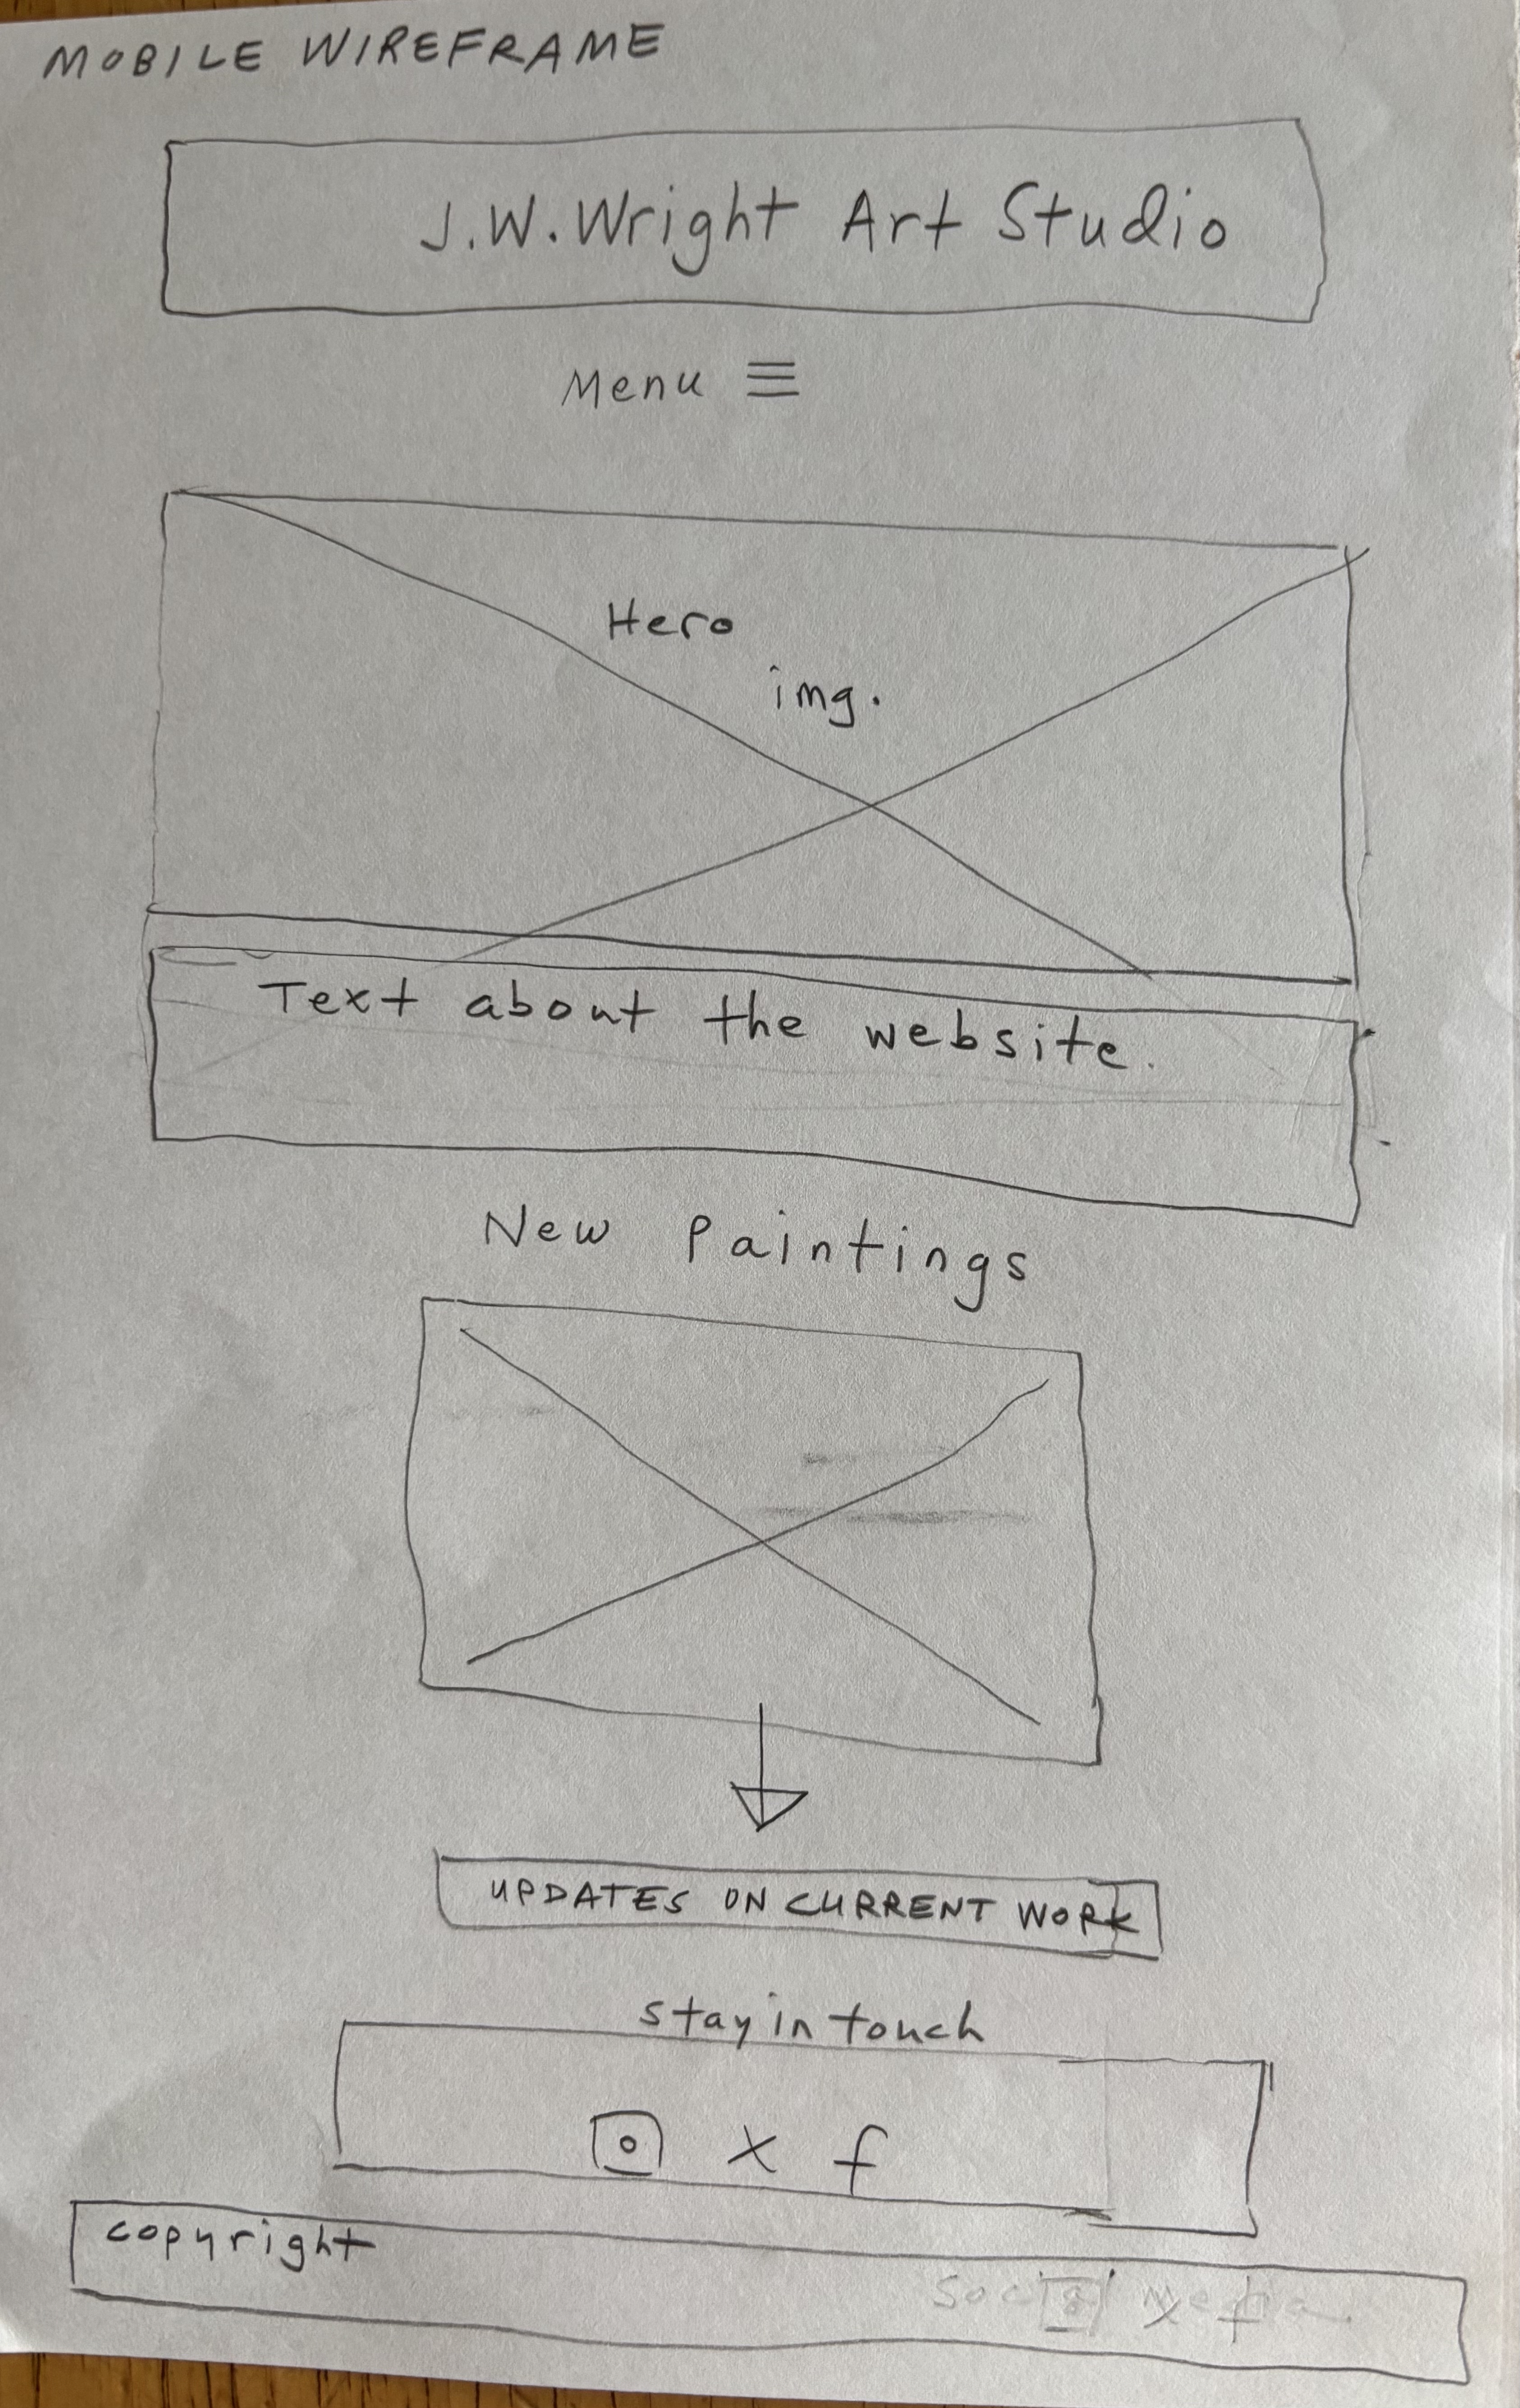 MOBILE WIREFRAME
J.W.Wright Art Studio
Menu
Hero
img.
Text about the website.
New Paintings
UPDATES ON CURRENT WORK
stay in touch
X f
copyright
Social Media